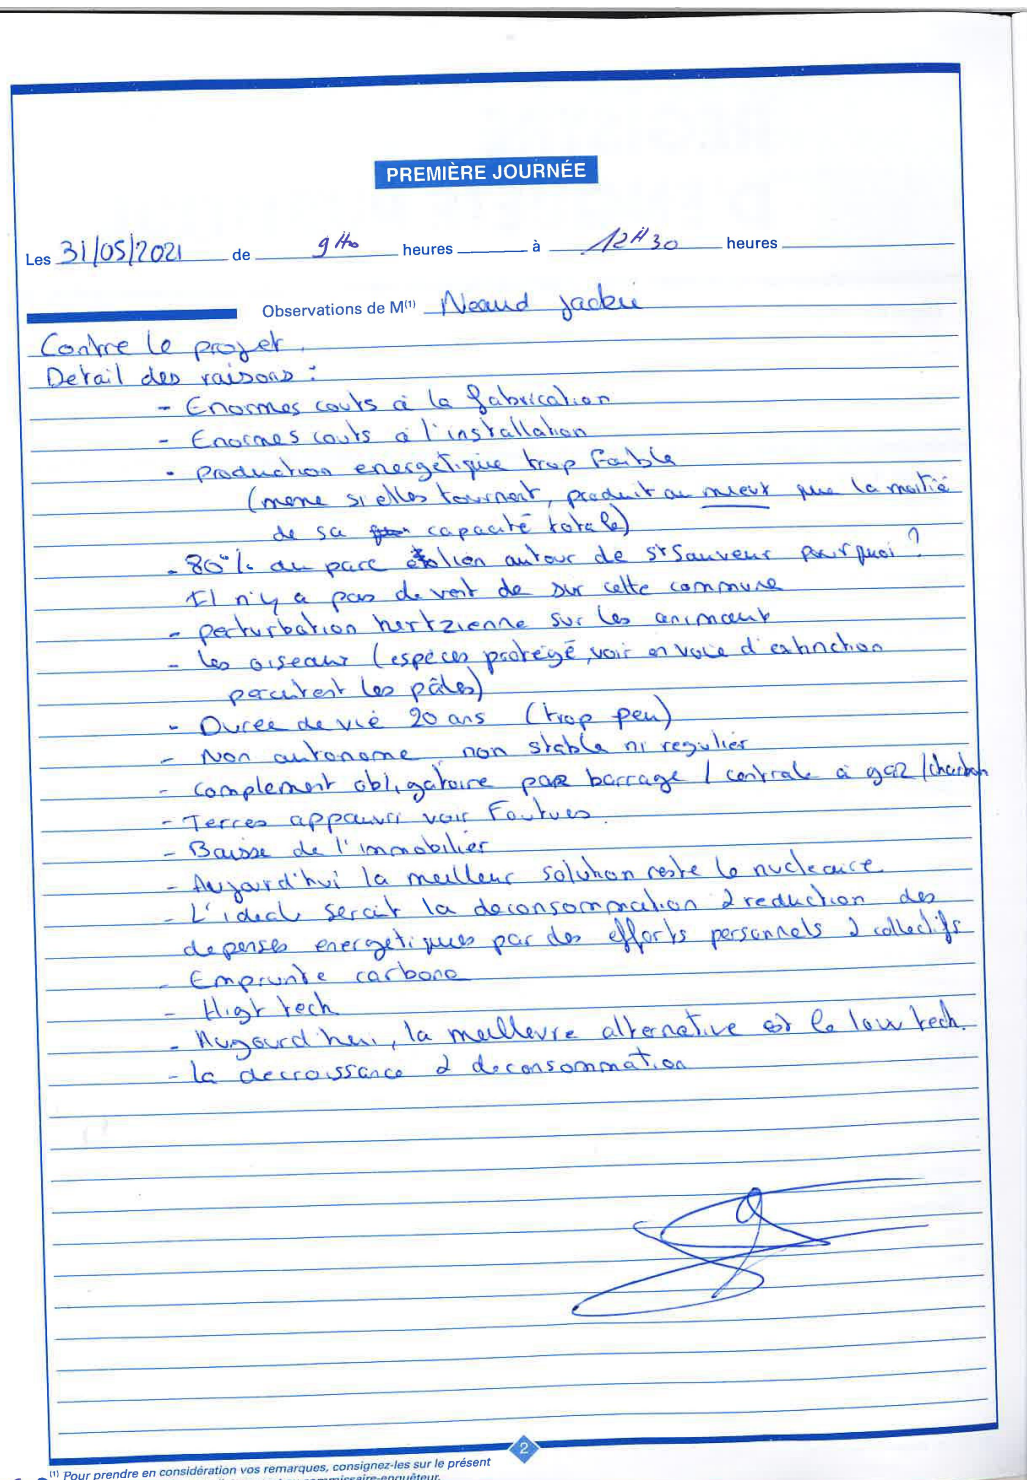 PREMIÈRE JOURNÉE
Les 31/05/2021 de 9H00 heures à 12H30 heures
Observations de M(1) Neaud Jackie
Contre le projet.
Detail des raisons :
- Enormes couts à la fabrication
- Enormes couts a l'installation
- production energetique trop Faible
(meme si elles tournent, produit au mieux que la moitié
de sa capacité totale)
- 80% du parc éolien autour de St Sauveur pourquoi ?
Il n'y a pas de vent de sur cette commune
- perturbation hertzienne sur les animaux
- les oiseaux (espèces protégé, voir en voie d'extinction
percutent les pâles)
- Durée de vie 20 ans (trop peu)
- Non autonome, non stable ni regulier
- complement obligatoire par barrage / centrale à gaz / charbon
- Terres appauvri voir Foutues.
- Baisse de l'immobilier
- Aujourd'hui la meilleur solution reste le nucleaire
- L'ideal serait la deconsommation & reduction des
depenses energetiques par des efforts personnels & collectifs
- Emprunte carbone
- High tech
- Aujourd'hui, la meilleure alternative est le low tech.
- la decroissance & deconsommation
2
(1) Pour prendre en considération vos remarques, consignez-les sur le présent
commissaire-enquêteur.